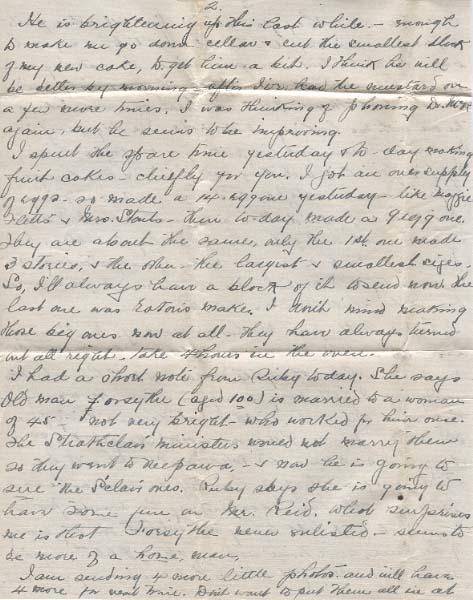 2.
He is brightening up this last while. - enough
to make me go down cellar & cut the smallest block
of my new cake, to get him a bit. I think he will
be better by morning - after I've had the mustard on
a few more times. I was thinking of phoning Dr.
again, but he seems to be improving.
I spent the spare time yesterday & to-day making
fruit cakes - chiefly for you. I got an over supply
of eggs - so made a 14 egg one yesterday - like Maggie
& Mrs. - then to-day made a 9 egg one.
They are about the same, only the 1st. one made
3 stories, & the other - the largest & smallest sizes.
So, I'll always have a block of it to send now. The
last one was Eaton's make. I don't mind making
those big ones now at all - they have always turned
out all right. Take 4 hours in the oven.
I had a short note from Ruby today. She says
Old man Forsythe (aged 100) is married to a woman
of 45 - not very bright - who worked for him once.
The Strathclair ministers would not marry them
so they went to Neepawa, - & now he is going to
sue the S'clair ones. Ruby says she is going to
have some fun on Mr. Reid. What surprises
me is that Forsythe never enlisted - seems to
be more of a home man.
I am sending 4 more little photos and will have
4 more for next time. Don't want to put them all in at